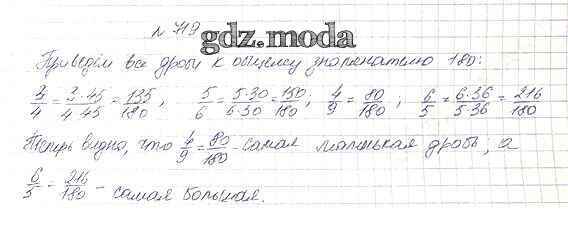 № 719
gdz.moda
Приведём все дроби к общему знаменателю 180:
3/4 = 3·45/4·45 = 135/180, 5/6 = 5·30/6·30 = 150/180; 4/9 = 80/180; 6/5 = 6·36/5·36 = 216/180
Теперь видно, что 4/9 = 80/180 - самая маленькая дробь, а
6/5 = 216/180 - самая большая.